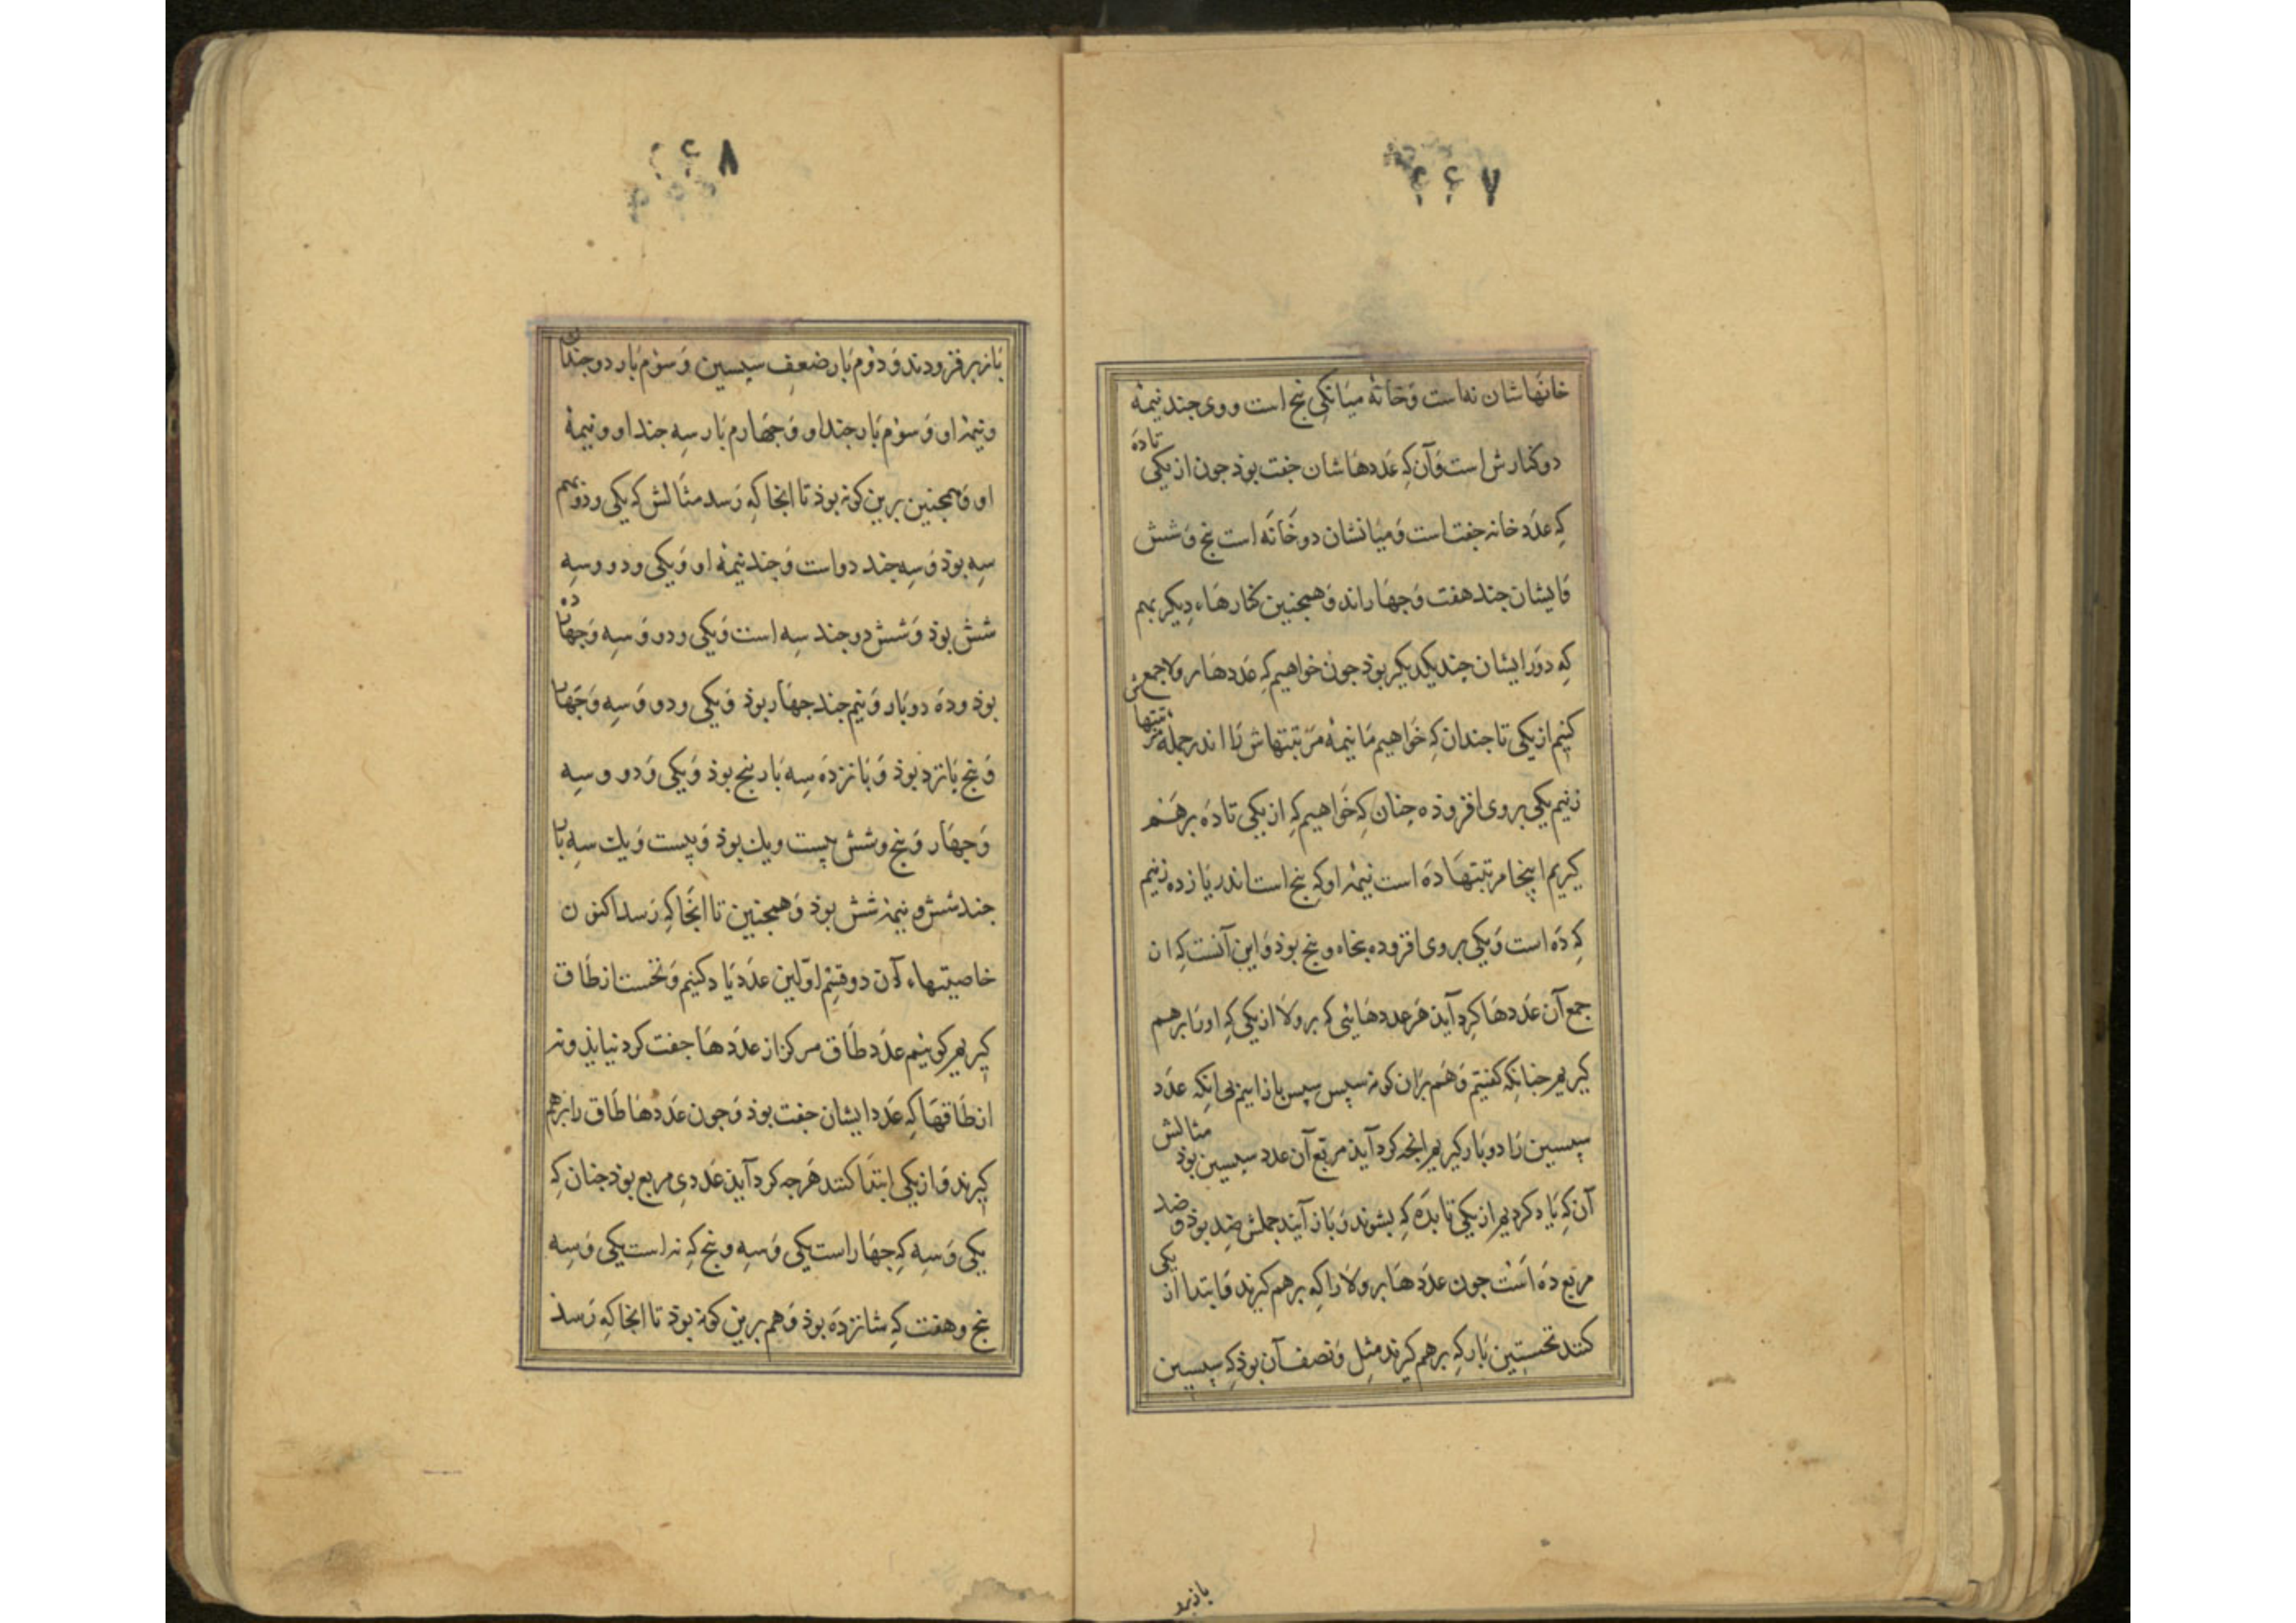 ۴۴۷
خانَهاشان نه است وَ خانهٔ میَانکی بنج است و وی جند نیمهٔ
دو کنارش است وَ آن کِه عَددهَاشان جفت بوذ جون از یکی تا دَه
کِه عدَد خانه جفت است وَ میَانشان دو خَانَه است بنج وَ شش
وَ ایشان جند هفت وَ جهَار اند وَ همجنین کنارهَاء دِیکر بهم
کِه دوَر ایشان جند یکدیکر بوذ جون خواهیم کِه عدَدهَا بر ولا جمعش
کنیم از یکی تا جندان کِه خوَاهیم مَا نیمهٔ مرَتبتهاش رَا اندر جملهٔ مرتبتها
زنیم یکی بر وی افزوذه جنان کِه خوَاهیم کِه از یکی تا دَه برهَم
کیریم اینجا مرتبتهَا دَه است نیمهٔ او کِه بنج است اندر یَازده زنیم
کِه دَه است وَ یکی بر وی افزوده بنجاه و بنج بوذ وَ این آنست کِه ان
جمع آن عَددهَا کرد آیذ هَر عددهَایی کِه بر وَلا از یکی کِه او رَا برهم
کیریم جنانکه کفتیم وَ هَم برَان کونه سپس سپس باز اییم بی انکِه عدَد
سپسین رَا دو بَار کیریم انجه کرد آیذ مربّع آن عدد سپسین بوذ مثالش
آن کِه یَاد کردیم از یکی تا بدَه کِه بشوند وَ بَاز آیند جملش صَد بوذ وَ صد
مربع دَه اسَت جون عددهَا بر ولَا رَا کِه برهم کیرند وَ ابتدا از یکی
کنند نخستین بَار کِه برهم کیرند مثِل وَ نصف آن بوذ کِه سپسین
بازبر
۴۴۸
بَاز بر فزودند وَ دوُم بَار ضعفِ سپسین وَ سوُم بَار دو جندان
و نیمهٔ او وَ سوُم بَار جند او وَ جهَارم بَار سِه جند او و نیمهٔ
او وَ همجنین برین کونه بوذ تا انجا کِه رَسد مثَالش کِه یکی و دو بهم
سِه بوذ وَ سِه جند دو است وَ جند نیمهٔ او وَ یکی و دو و سِه
شش بوذ وَ شش دو جند سِه است وَ یکی و دو وَ سِه وَ جهَار دَه
بوذ و دَه دو بَار وَ نیم جند جهَار بوذ وَ یکی و دو وَ سِه وَ جهَار
وَ بنج بَانزد بوذ وَ بَانزدَه سِه بَار بنج بوذ وَ یکی وَ دو و سِه
وَ جهَار وَ بنج و شش بیست و یک بوذ وَ بیست وَ یک سِه بار
جند شش و نیمهٔ شش بوذ وَ همجنین تا انجَا کِه رَسد اکنون
خاصیتهاء آن دو قِسِم اوّلین عدَد یَاد کنیم وَ نخست از طَاق
کیریم کوییم عدَد طَاق مرکز از عدَدهَا جفت کرد نیایذ و نه
از طَاقهَا کِه عَدد ایشان جفت بوذ وَ جون عَددهَا طَاق را برهم
کیرند وَ از یکی ابتدَا کنند هَرجه کرد آیذ عَددی مربع بوذ جنان کِه
یکی وَ سِه کِه جهَار است یکی وَ سِه و بنج کِه نه است یکی وَ سِه
بنج و هفت کِه شانزدَه بوذ وَ هم برین کونه بوذ تا انجا کِه رَسذ